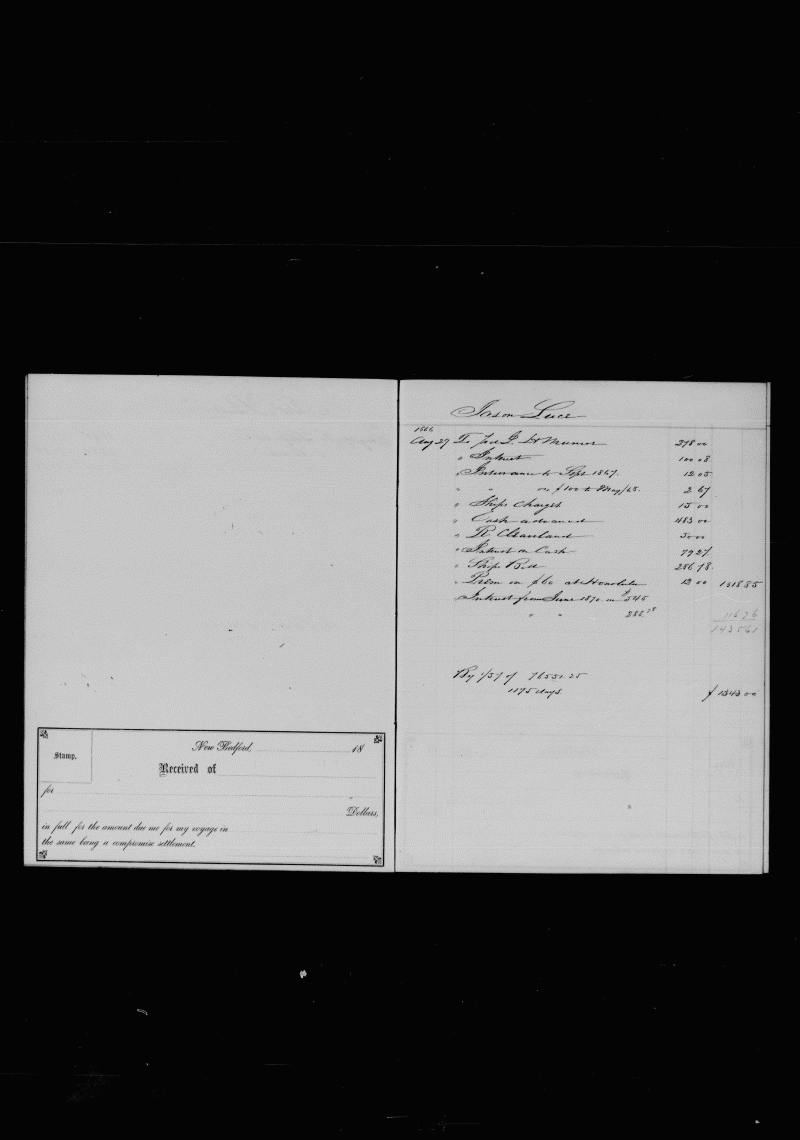 Stamp.
New Bedford, 18
Received of
for
Dollars,
in full for the amount due me for my voyage in
the same being a compromise settlement.
Jason Luce
1866
Aug 29 To 278 00
" Interest 100 03
" Insurance to Sept 1867. 12 05
" " on $100 to May/68. 2 67
" Ships Charges 15 00
" Cash advanced 483 00
" R Cleaveland 50 00
" Interest on Cash 79 27
" Ships Bill 286 78
" Prem on $60 at Honolulu 12 00 1318 85
Interest from June 1870 on $545
" " 286 78 116 76
1435 61
By 1/57 of 76551.25
1195 days $1343 00